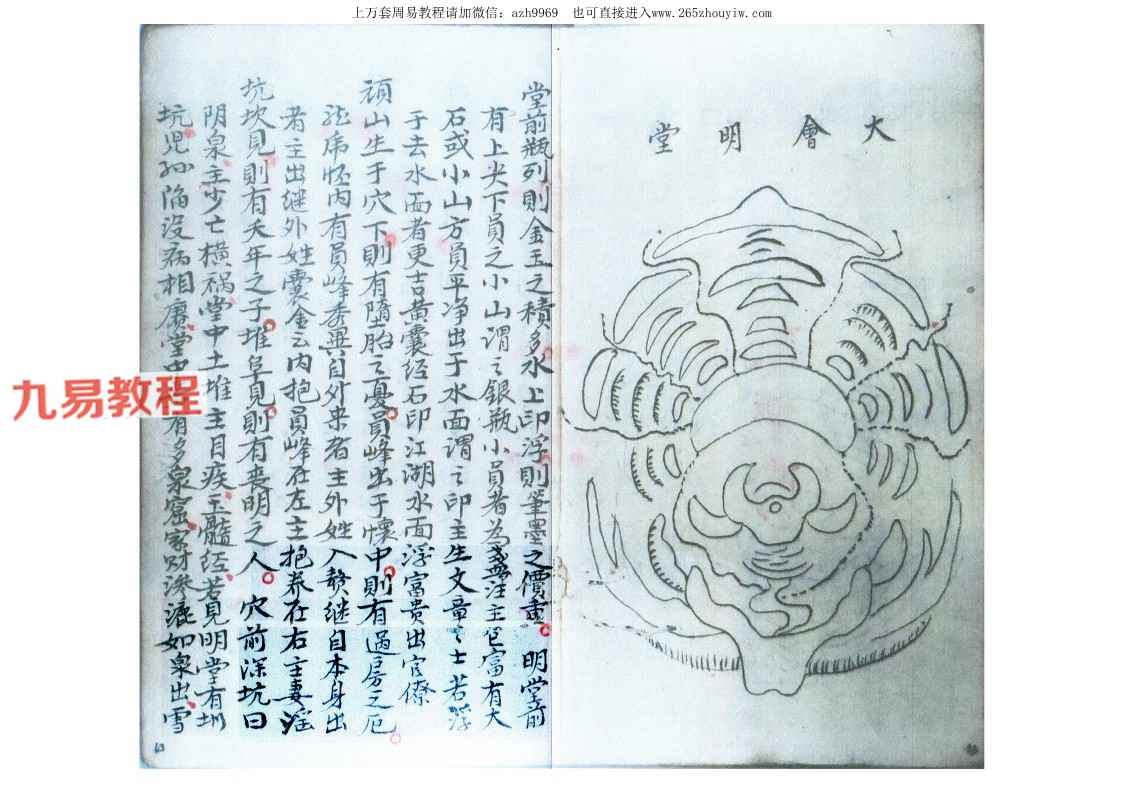 上万套周易教程请加微信：azh9969　也可直接进入www.265zhouyiw.com
大會明堂
堂前瓶列則金玉之積多水上印浮則筆墨之價重　明堂前
有上尖下員之小山謂之銀瓶小員者為盞注主巨富有大
石或小山方員平净出于水面謂之印主生文章之士若浮
于去水面者更吉黄囊经石印江湖水面浮富貴出官僚
頑山生于穴下則有墮胎之憂員峰出于懷中則有過房之厄
龙虎怀内有員峰秀異自外来者主外姓入赘继自本身出
者主出继外姓囊金云内抱員峰在左主抱养在右主妻淫
坑坎見則有夭年之子堆阜見則有丧明之人　穴前深坑曰
阴泉主少亡横祸堂中土堆主目疾玉髓经若見明堂有圳
坑児孙陷没病相 堂中 有多泉窟家财滲漏如泉出雪
九易教程
63